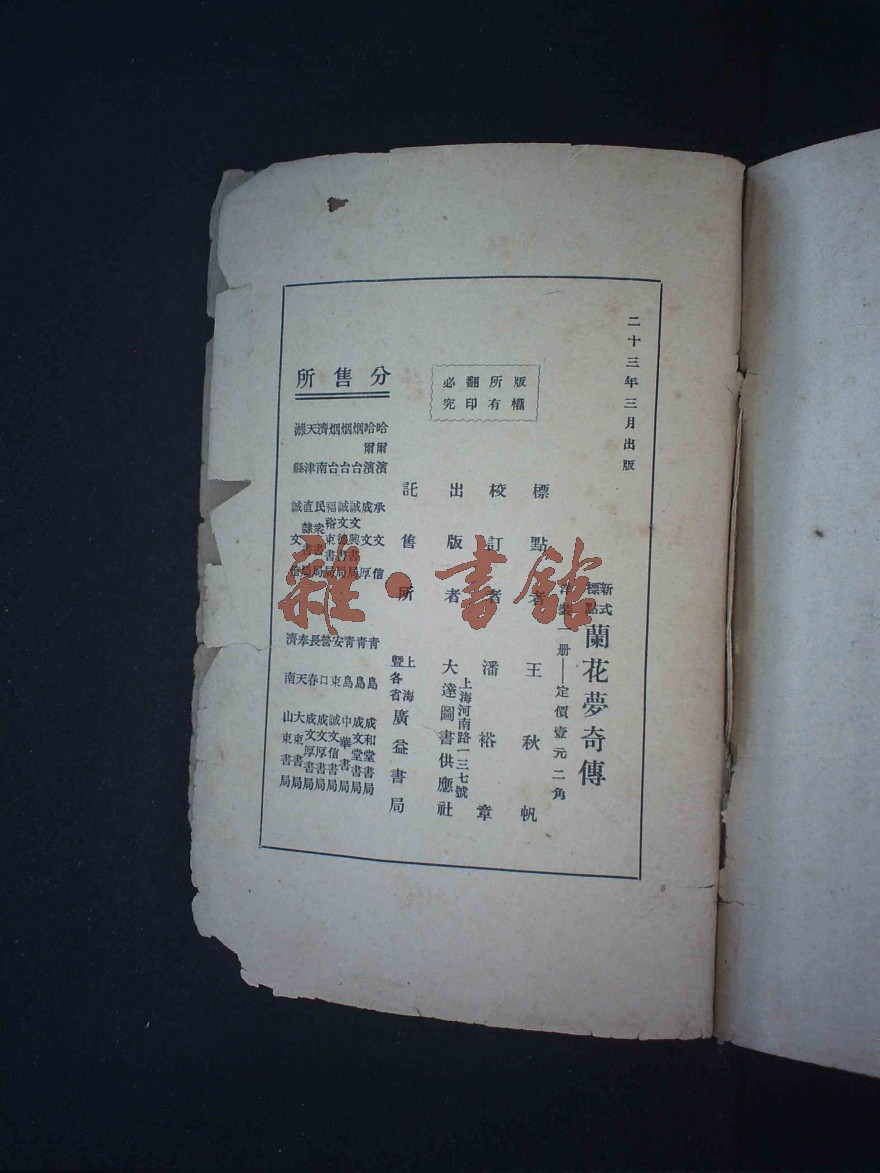 二十三年三月出版
新式標點 蘭花夢奇傳
洋裝一册——定價壹元二角
版權所有翻印必究
標點者 王秋帆
校訂者 潘裕章
出版者 上海河南路一三七號 大達圖書供應社
託售所 上海暨各省 廣益書局
分售所
哈爾濱 承文信
哈爾濱 成文厚
烟台 誠文
烟台 誠文德興
烟台 福裕東書局
濟南 民衆書局
天津 直隸書局
濰縣 誠文
青島 成和堂書局
青島 成文堂書局
青島 中華書局
安東 誠文信書局
營口 成文厚書局
長春 成文厚書局
奉天 大東書局
濟南 山東書局
雜·書館